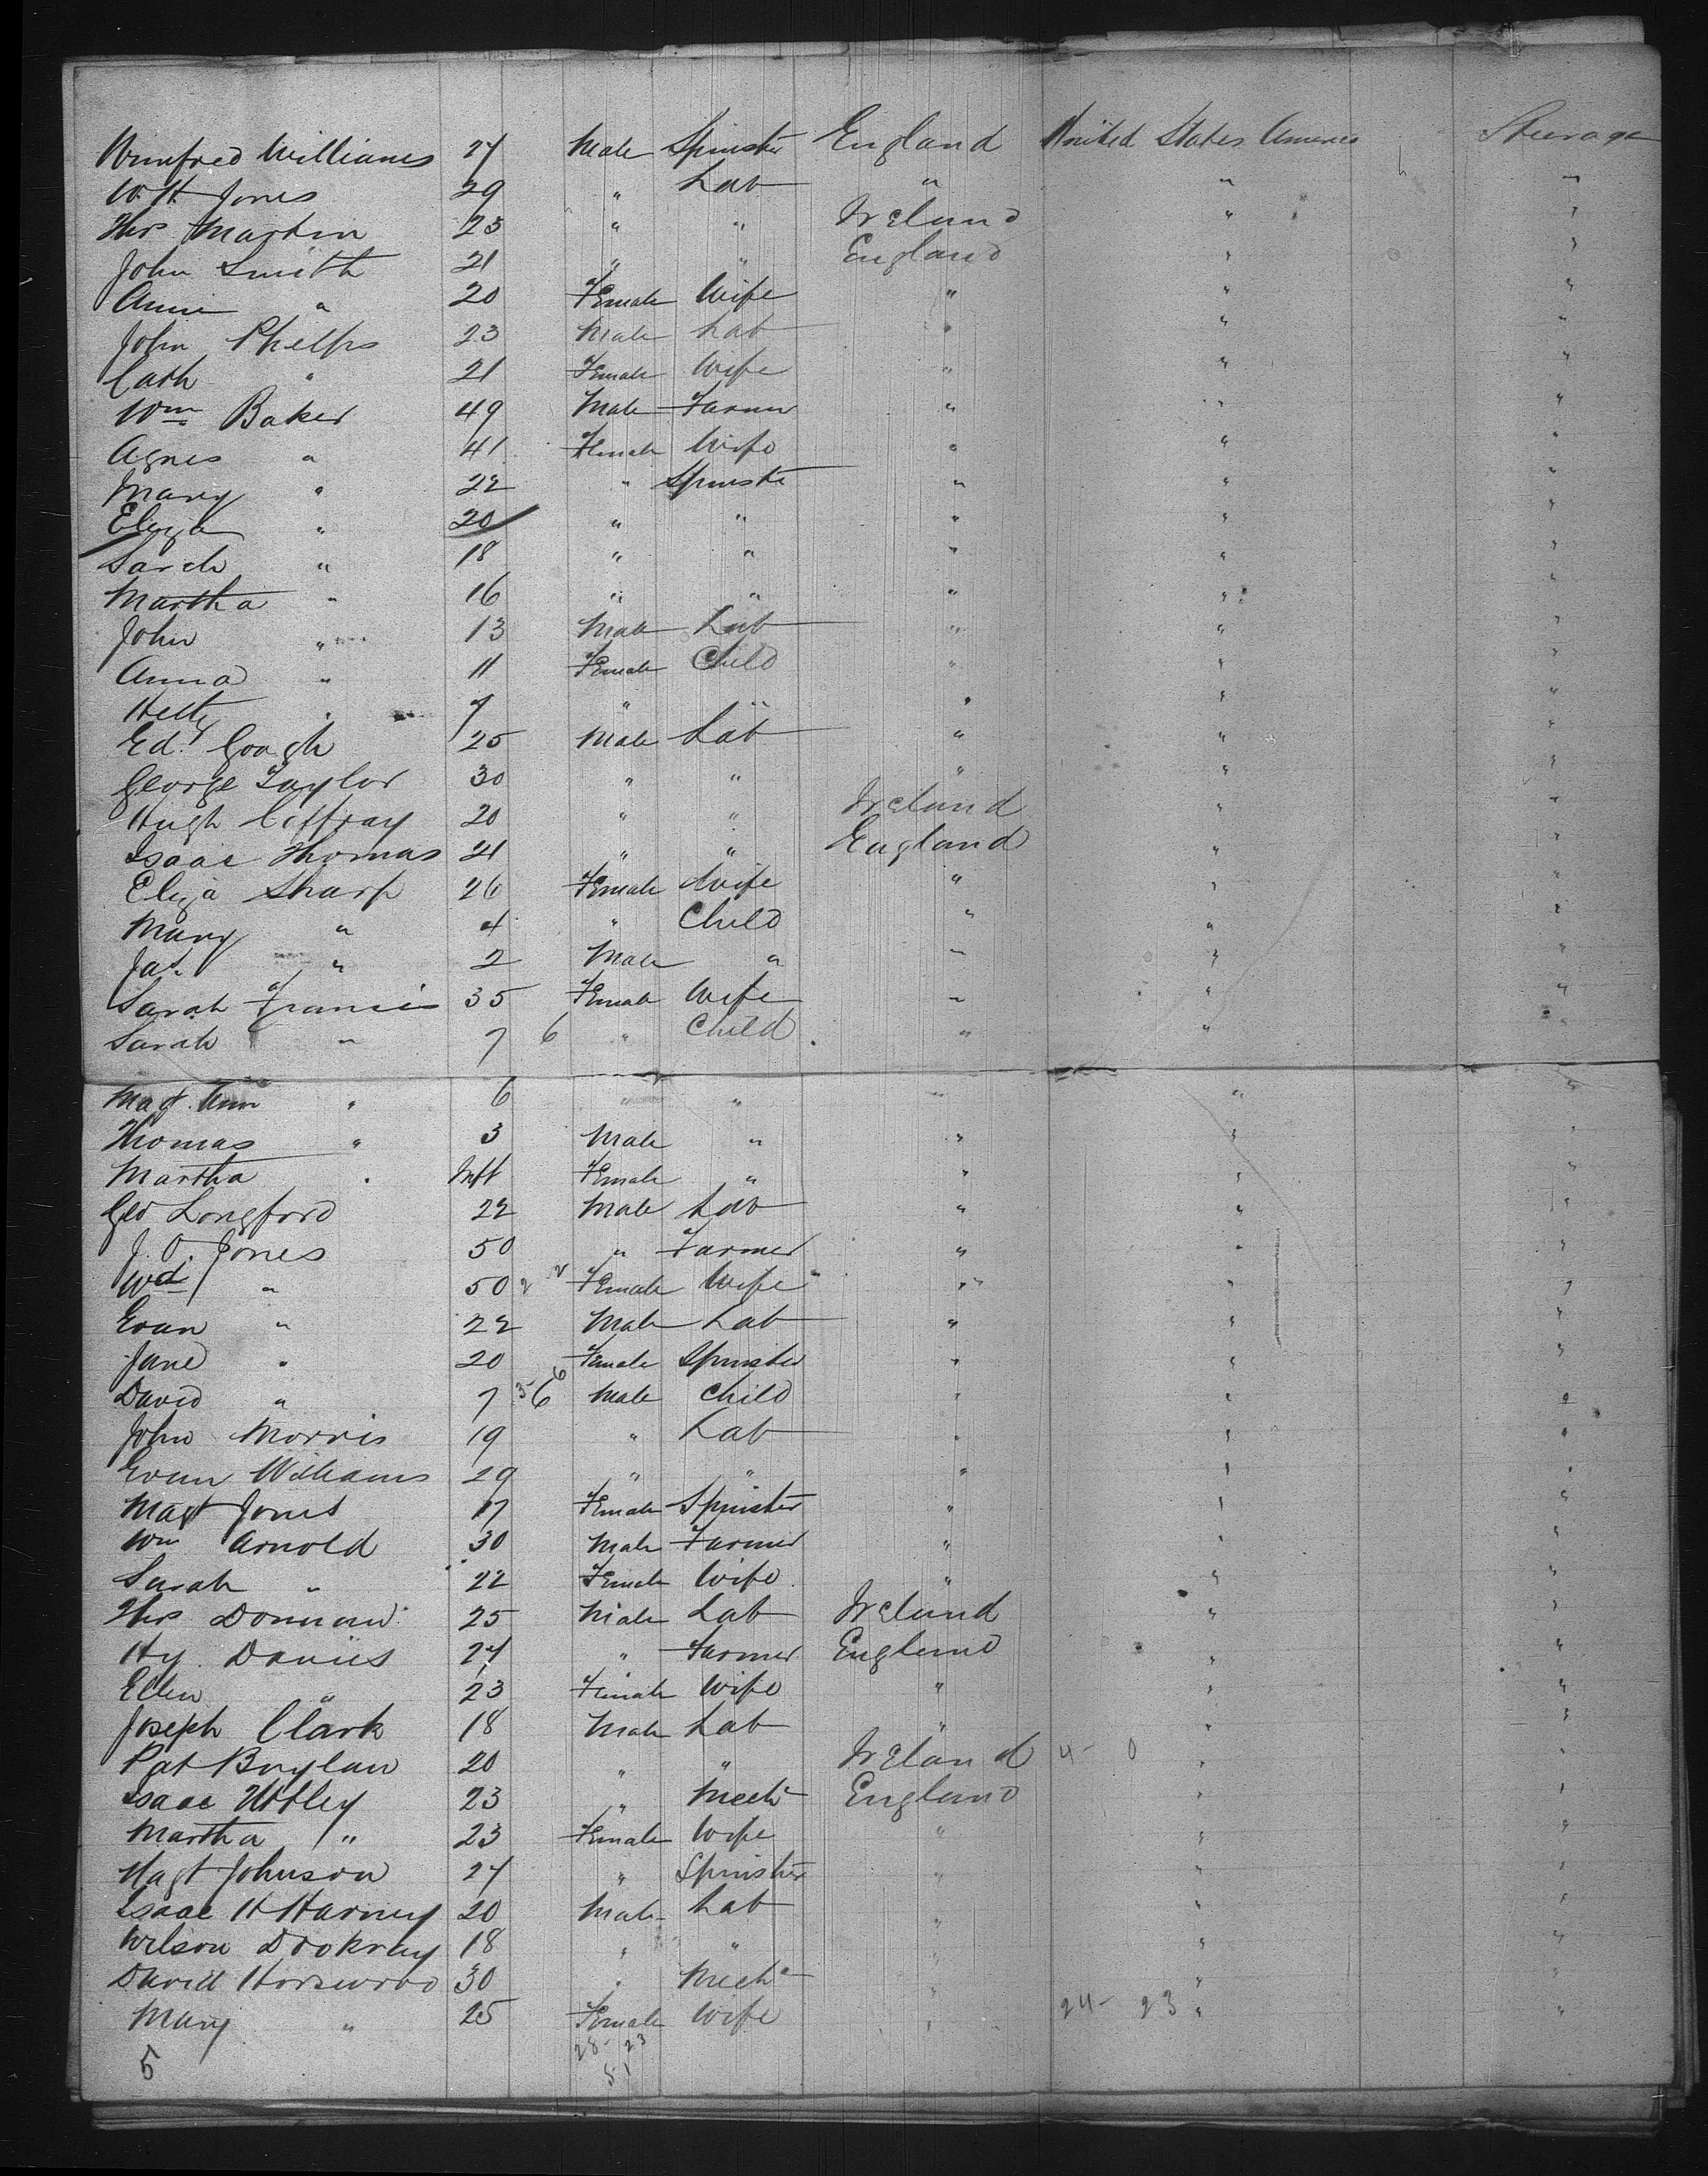 Winifred Williams 27 Male Spinster England United States America Steerage
W. H. Jones 29 " Lab " " "
Thos Martin 23 " " Ireland " "
John Smith 21 " " England " "
Annie " 20 Female Wife " " "
John Phelps 23 Male Lab " " "
Cath " 21 Female Wife " " "
Wm Baker 49 Male Farmer " " "
Agnes " 41 Female Wife " " "
Mary " 22 " Spinster " " "
Eliza " 20 " " " " "
Sarah " 18 " " " " "
Martha " 16 " " " " "
John " 13 Male Lab " " "
Anna " 11 Female Child " " "
Hetty " 9 " " " " "
Ed. Gough 25 Male Lab " " "
George Taylor 30 " " " " "
Hugh Caffray 20 " " Ireland " "
Isaac Thomas 21 " " England " "
Eliza Sharp 26 Female Wife " " "
Mary " 4 " Child " " "
Jas. " 2 Male " " " "
Sarah Francis 35 Female Wife " " "
Sarah " 7 6 " Child " " "
Magt. Ann " 6 " " " " "
Thomas " 3 Male " " " "
Martha " Inft Female " " " "
Geo Longford 22 Male Lab " " "
J. O. Jones 50 " Farmer " " "
Wd " 50 2 2 Female Wife " " "
Evan " 22 Male Lab " " "
Jane " 20 Female Spinster " " "
David " 7 3 6 6 Male Child " " "
John Morris 19 " Lab " " "
Evan Williams 29 " " " " "
Magt Jones 17 Female Spinster " " "
Wm Arnold 30 Male Farmer " " "
Sarah " 22 Female Wife " " "
Thos Donnan 25 Male Lab Ireland " "
Hy. Davies 27 " Farmer England " "
Ellen " 23 Female Wife " " "
Joseph Clark 18 Male Lab " " "
Pat Boylan 20 " " Ireland 4 - 0 " "
Isaac Uttley 23 " Mech England " "
Martha " 23 Female Wife " " "
Magt Johnson 27 " Spinster " " "
Isaac H Harney 20 Male Lab " " "
Wilson Dookray 18 " " " " "
David Horswood 30 " Mech " " "
Mary " 25 Female Wife " 24 - 23 " "
28 - 23
5 51